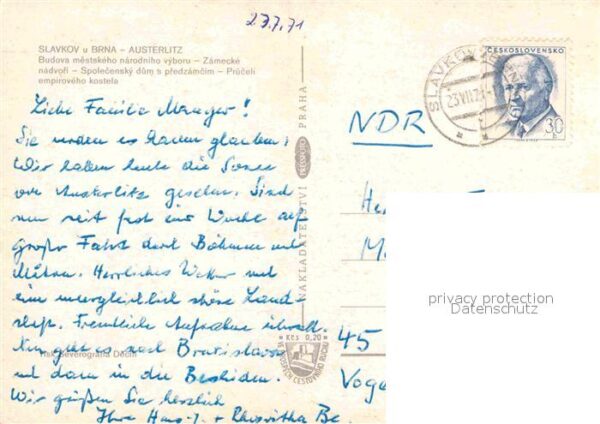 23.7.71
SLAVKOV u BRNA – AUSTERLITZ
Budova městského národního výboru – Zámecké
nádvoří – Společenský dům s předzámčím – Průčelí
empírového kostela
Liebe Familie
Sie werden es kaum glauben:
Wir haben heute die Sonne
von Austerlitz gesehen. Sind
nun seit fast einer Woche auf
großer Fahrt durch Böhmen und
Mähren. Herrliches Wetter und
eine unvergleichlich schöne Land-
schaft. Freundliche Aufnahme überall.
Nun geht es nach Bratislava
und dann in die Beskiden.
Wir grüßen Sie herzlich
Ihre Hans-J. + Rhoswitha Be
Tisk Severografia Děčín
NAKLADATELSTVÍ PRESSFOTO PRAHA
Kčs 0,20
ČESKOSLOVENSKO
30
h
SLAVKOV
23.VII.71
NDR
45
Voge
privacy protection
Datenschutz